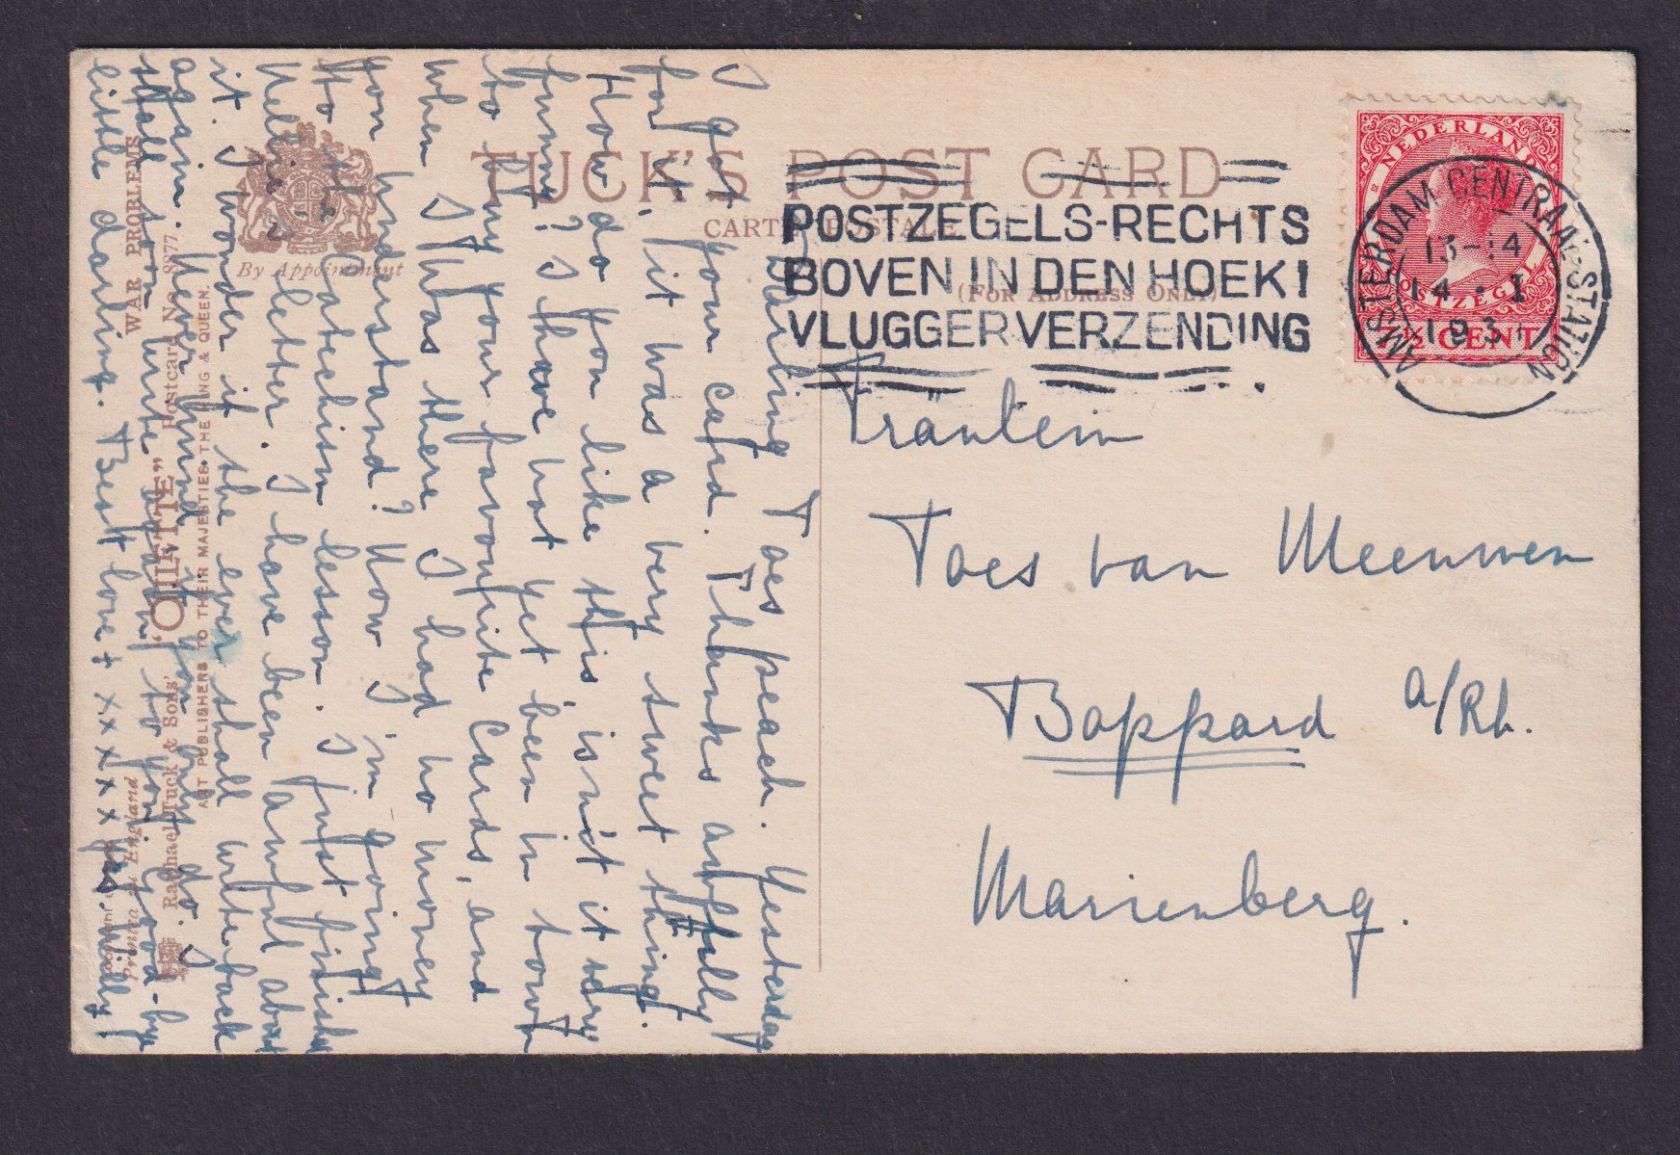 TUCK'S POST CARD
CARTE POSTALE
(FOR ADDRESS ONLY)
By Appointment
POSTZEGELS-RECHTS
BOVEN IN DEN HOEK!
VLUGGER VERZENDING
NEDERLAND
POSTZEGEL
7½ CENT
AMSTERDAM CENTRAAL STATION
13-14
14 · I
193
Fräulein
Toes van Meeuwen
Boppard a/Rh.
Marienberg.
Darling Toes peach. Yesterday
I got your card. Thanks awfully
for it, it was a very sweet thing.
How do you like this isn't it very
funny? I have not yet been in town
to buy your favourite cards, and
when I was there I had no money
you understand? Now I'm going
to Catechism lesson. I just finished
Nellie's letter. I have been awful about
it. I wonder if she ever shall write back
again. Never mind if you only do. I
shall soon write to you. Good-bye
little darling. Best love + x x x x x Willy
WAR PROBLEMS
"OILETTE" Postcard No. 8877.
Raphael Tuck & Sons'
ART PUBLISHERS TO THEIR MAJESTIES THE KING & QUEEN.
Printed in England